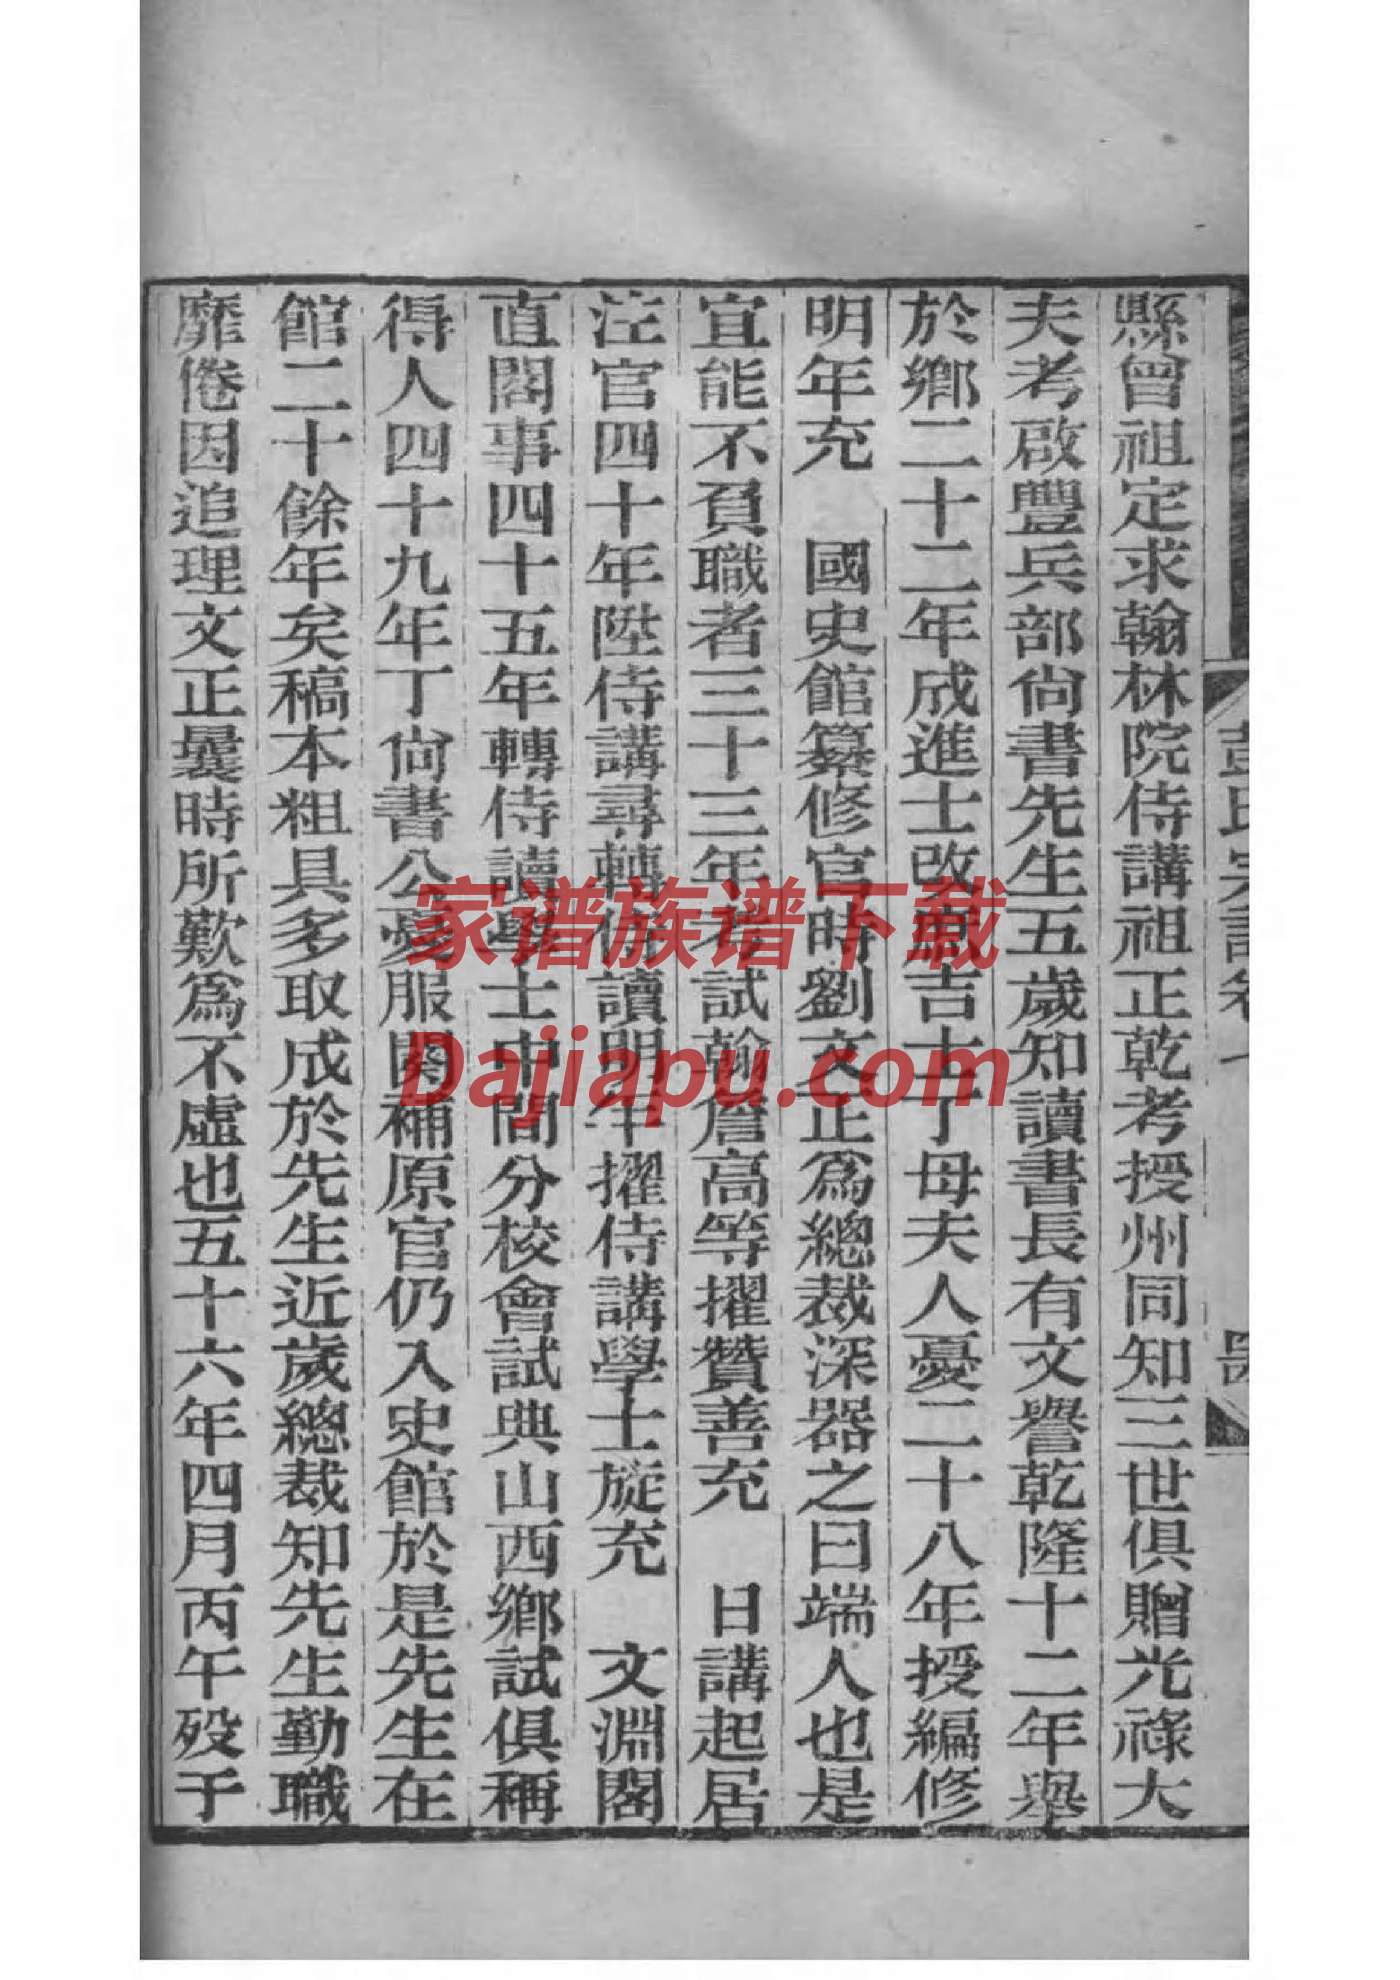 縣曾祖定求翰林院侍講祖正乾考授州同知三世俱贈光祿大
夫考啟豐兵部尙書先生五歲知讀書長有文譽乾隆十二年舉
於鄉二十二年成進士改庶吉士丁母夫人憂二十八年授編修
明年充 國史館纂修官時劉文正爲總裁深器之曰端人也是
宜能不負職者三十三年考試翰詹高等擢贊善充 日講起居
注官四十年陞侍講尋轉侍讀明年擢侍講學士旋充 文淵閣
直閣事四十五年轉侍讀學士中間分校會試典山西鄉試俱稱
得人四十九年丁尙書公憂服闋補原官仍入史館於是先生在
館二十餘年矣稿本粗具多取成於先生近歲總裁知先生勤職
靡倦因追理文正曩時所歎爲不虛也五十六年四月丙午歿于
彭氏宗譜卷七
家谱族谱下载
Dajiapu.com